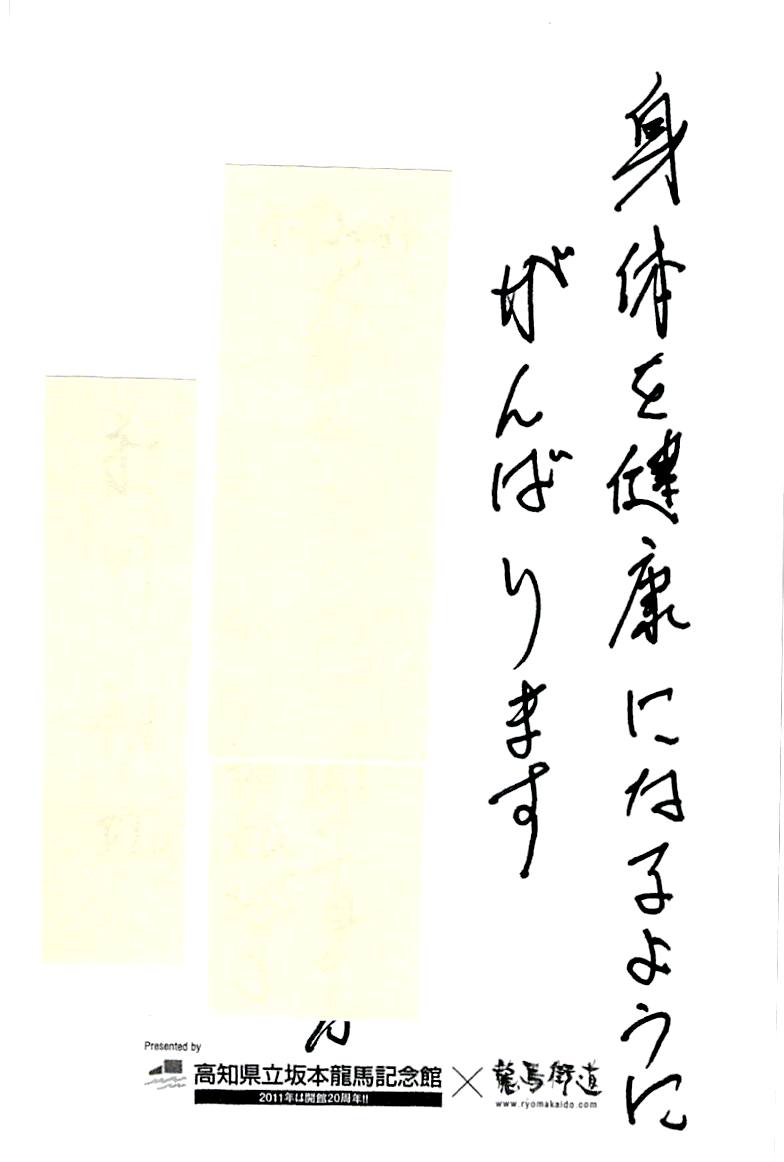 身体を健康になるように
がんばります
Presented by
高知県立坂本龍馬記念館
2011年は開館20周年!!
×
龍馬街道
www.ryomakaido.com